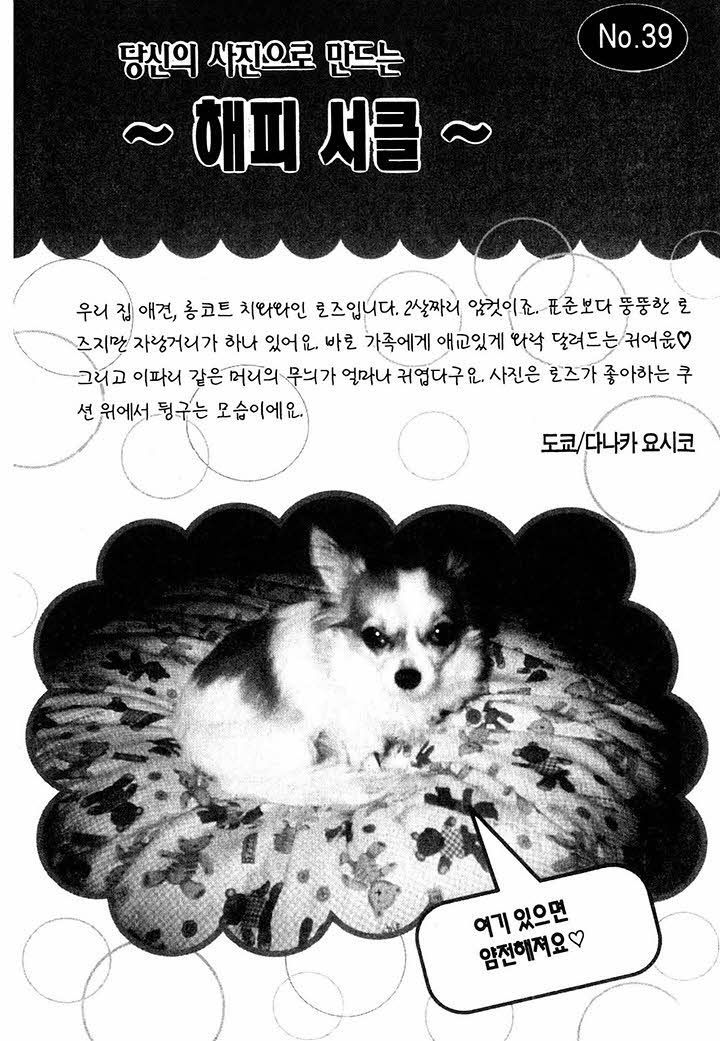 No.39
당신의 사진으로 만드는
~ 해피 서클 ~
우리 집 애견, 롱코트 치와와인 로즈입니다. 2살짜리 암컷이죠. 표준보다 뚱뚱한 로
즈지만 자랑거리가 하나 있어요. 바로 가족에게 애교있게 와락 달려드는 귀여움♡
그리고 이파리 같은 머리의 무늬가 얼마나 귀엽다구요. 사진은 로즈가 좋아하는 쿠
션 위에서 뒹구는 모습이에요.
도쿄/다나카 요시코
여기 있으면
얌전해져요♡